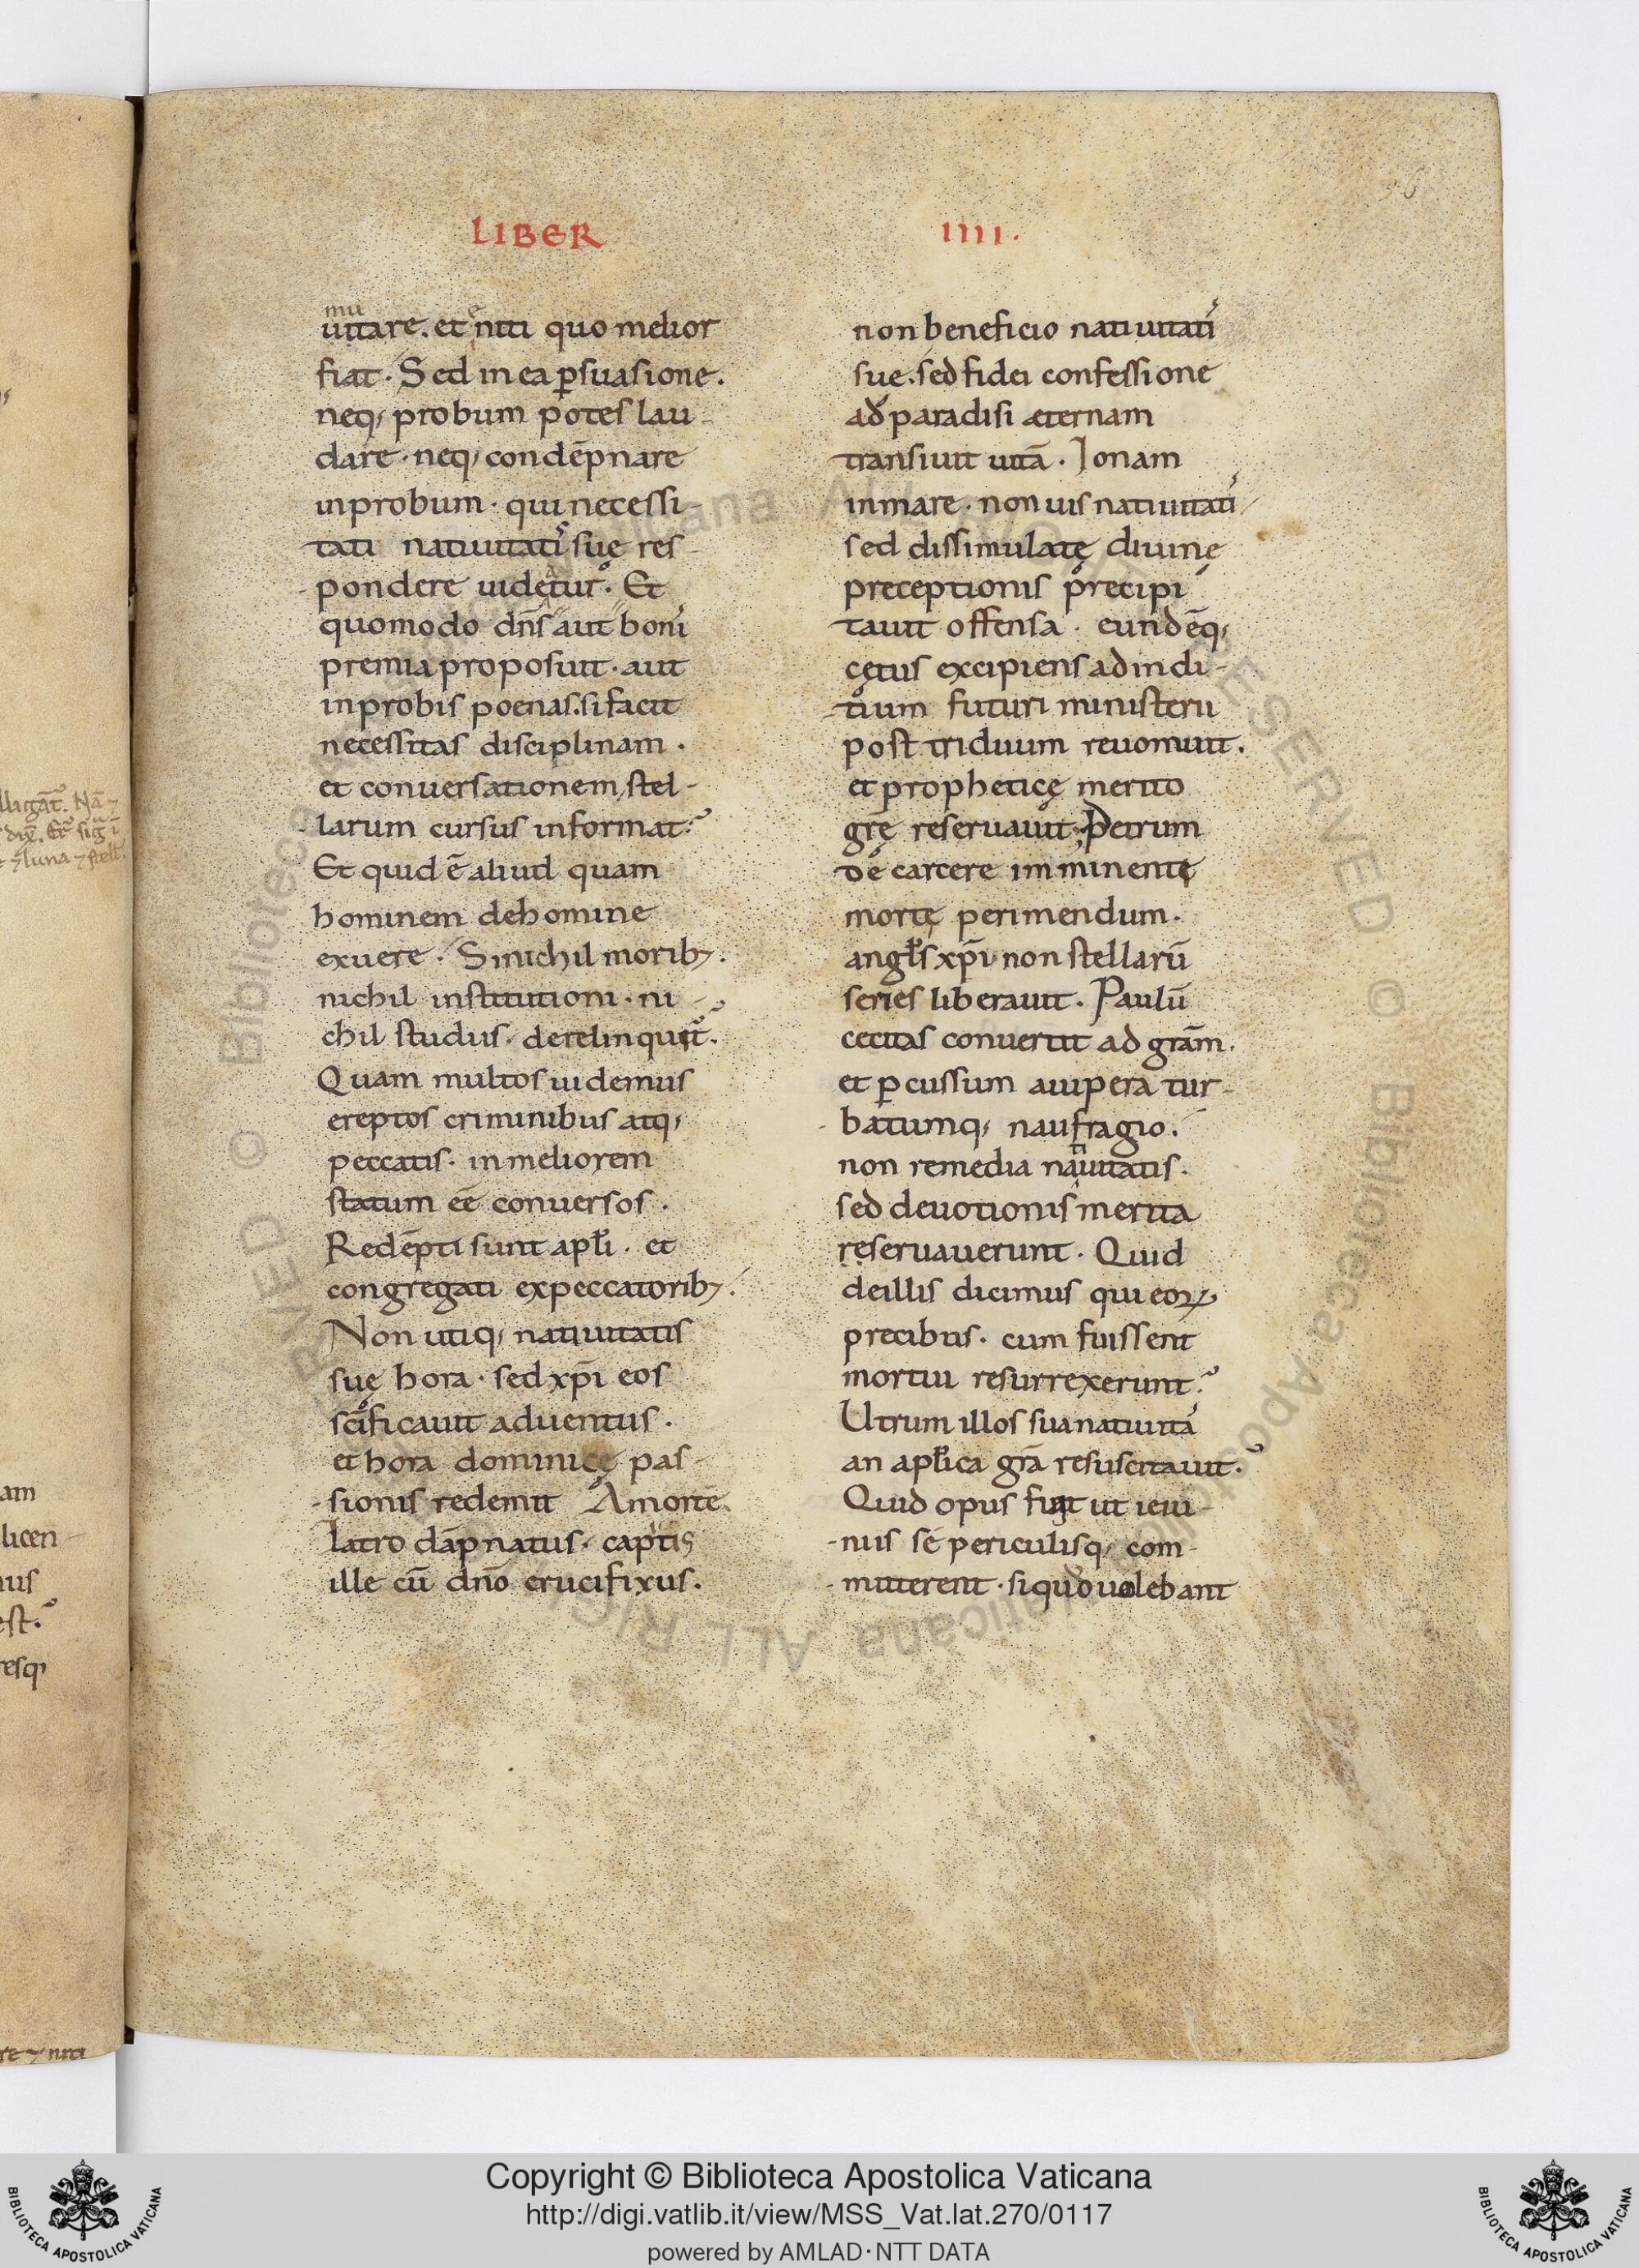 LIBER IIII.
mu e
uitare. et niti quo melior
fiat. Sed in ea p̱suasione.
neq; probum potes lau-
dare. neq; condēpnare
inprobum. qui necessi-
tati natiuitati᷒ suę res-
pondere uidetur. Et
quomodo dn̄s aut boni᷒
premia proposuit. aut
inprobis poenas. si facit
necessitas disciplinam.
et conuersationem stel-
larum cursus informat?
Et quid ē aliud quam
hominem de homine
exuere. Si nichil morib;.
nichil institutioni. ni-
chil studiis. derelinquit̄?
Quam multos uidemus
ereptos criminibus atq;
peccatis. in meliorem
statum eē conuersos.
Redēpti sunt apl̄i. et
congregati ex peccatorib;.
Non utiq; natiuitatis
suę hora. sed xp̄i eos
sc̄ificauit aduentus.
et hora dominicę pas-
sionis redemit A morte
latro dāpnatus. captis
ille cū dn̄o crucifixus.
non beneficio natiuitati᷒
sue. sed fidei confessione
ad paradisi æternam
transiuit uitā. Ionam
in mare. non uis natiuitati᷒
sed dissimulatę diuinę
preceptionis precipi
tauit offensa. eundēq;
cętus excipiens ad indi-
tium futuri ministerii
post triduum reuomuit.
et propheticę merito
grę reseruauit. Petrum
de carcere imminentę
mortę perimendum.
angl̄s xp̄i non stellarū
series liberauit. Paulū
cecitas conuertit ad grām.
et p̱cussum a uipera tur-
batumq; naufragio.
ti
non remedia nauitatis.
sed deuotionis merita
reseruauerunt. Quid
de illis dicimus qui eoꝝ
precibus. cum fuissent
mortui resurrexerunt?
Utrum illos sua natiuita᷒
an apl̄ica grā resuscitauit?
Quid opus fuit ut ieiu-
niis se periculisq; com-
mitterent. si quo uolebant
am
licen-
nus
est?
resq;
Copyright © Biblioteca Apostolica Vaticana
http://digi.vatlib.it/view/MSS_Vat.lat.270/0117
powered by AMLAD·NTT DATA
BIBLIOTECA APOSTOLICA VATICANA
BIBLIOTECA APOSTOLICA VATICANA